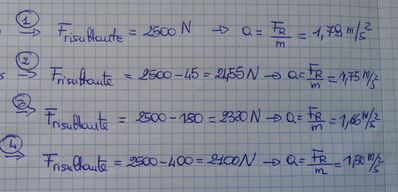 ① F risultante = 2500 N → a = FR/m = 1,79 m/s²
② F risultante = 2500-45 = 2455 N → a = FR/m = 1,75 m/s²
③ F risultante = 2500-180 = 2320 N → a = FR/m = 1,66 m/s²
④ F risultante = 2500-400 = 2100 N → a = FR/m = 1,50 m/s²